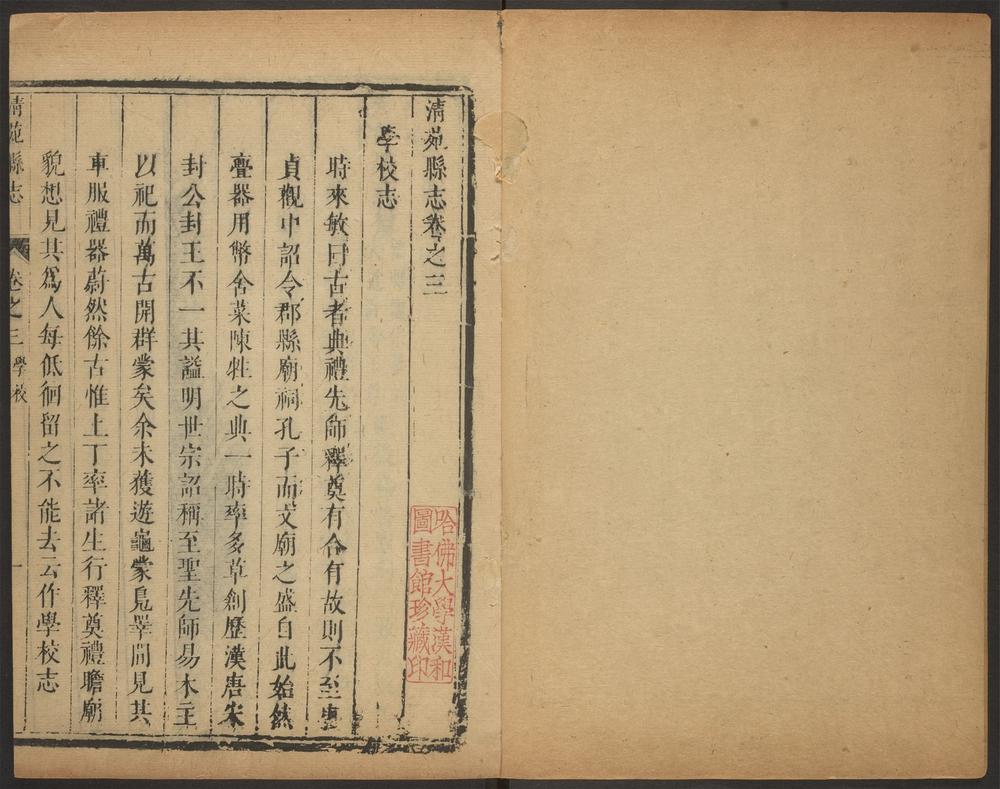 清苑縣志卷之三
學校志
時來敏曰古者典禮先師釋奠有合有故則不至唐
貞觀中詔令郡縣廟祠孔子而文廟之盛自此始然
疊器用幣舍菜陳牲之典一時率多草創歷漢唐宋
封公封王不一其謚明世宗詔稱至聖先師易木主
以祀而萬古開群蒙矣余未獲遊龜蒙鳧嶧間見其
車服禮器蔚然餘古惟上丁率諸生行釋奠禮瞻廟
貌想見其為人每低徊留之不能去云作學校志
清苑縣志
卷之三 學校
一
哈佛大學漢和
圖書館珍藏印